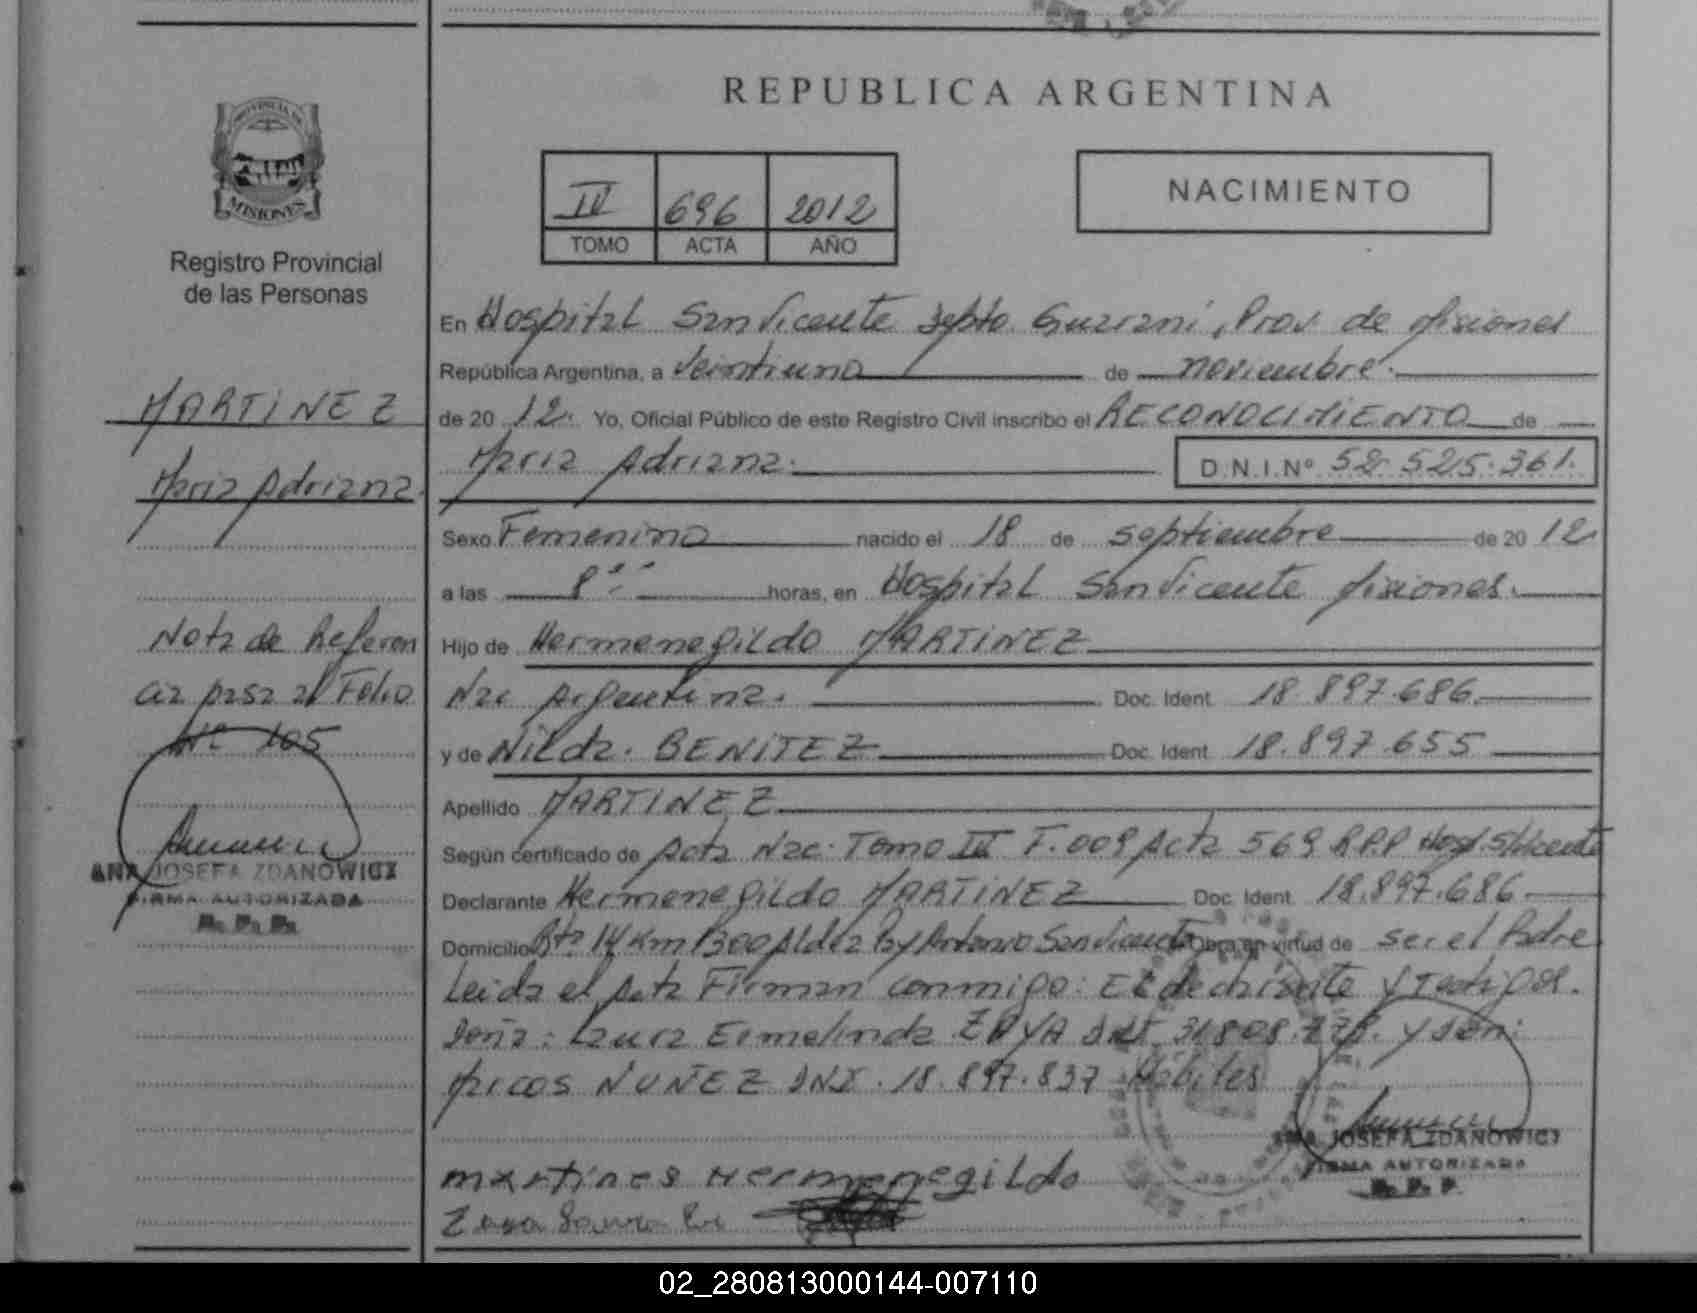 REPUBLICA ARGENTINA
PROVINCIA DE
MISIONES
Registro Provincial
de las Personas
IV 696 2012
TOMO ACTA AÑO
NACIMIENTO
MARTINEZ
Maria Adriana.
Nota de Referen
cia pasa al Folio
Nº 105
ANA JOSEFA ZDANOWICZ
FIRMA AUTORIZADA
R. P. P.
En Hospital San Vicente Depto Guarani, Prov. de Misiones
República Argentina, a Veintiuno de noviembre.
de 20 12. Yo, Oficial Público de este Registro Civil inscribo el RECONOCIMIENTO de
Maria Adriana. D.N.I.Nº 52.525.361.
Sexo Femenino nacido el 18 de septiembre de 20 12
a las 8 horas, en Hospital San Vicente Misiones.
Hijo de Hermenegildo MARTINEZ
Nac Argentina. Doc. Ident. 18.897.686.
y de Nilda. BENITEZ Doc. Ident. 18.897.655
Apellido MARTINEZ
Según certificado de Acta Nac. Tomo III F.009 Acta 569 R.P.P Hosp. S/Vicente
Declarante Hermenegildo MARTINEZ Doc. Ident. 18.897.686
Domicilio Rta 14 Km 1300 Aldea Py Antonio San Vicente Obra en virtud de ser el Padre
Leida el Acta Firman conmigo: El declarante y testigos.
Doña: Laura Ermelinda ZAYA DNI 31808. y Don:
Marcos NUÑEZ DNI. 18.897.837 Hábiles
ANA JOSEFA ZDANOWICZ
FIRMA AUTORIZADA
R. P. P.
martines Hermenegildo
Zaya Laura
02_280813000144-007110